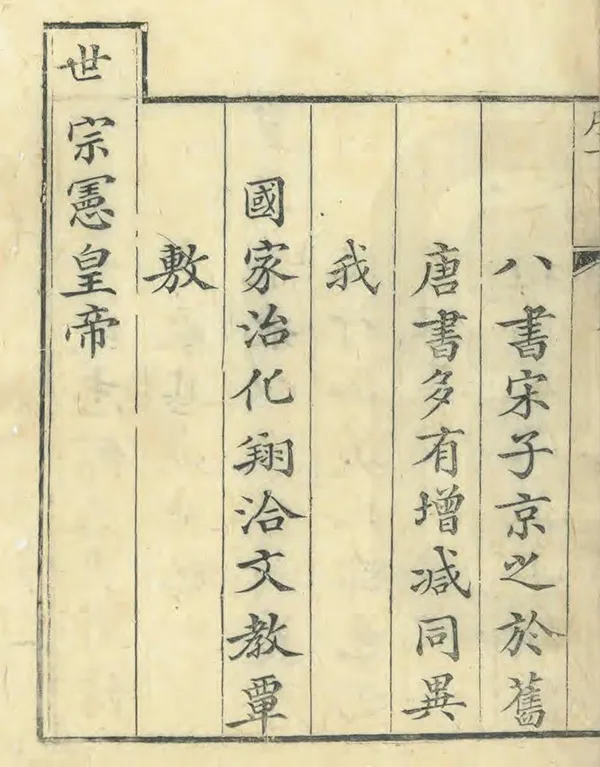 八書宋子京之於舊
唐書多有增减同異
我
國家治化翔洽文教覃
敷
世宗憲皇帝